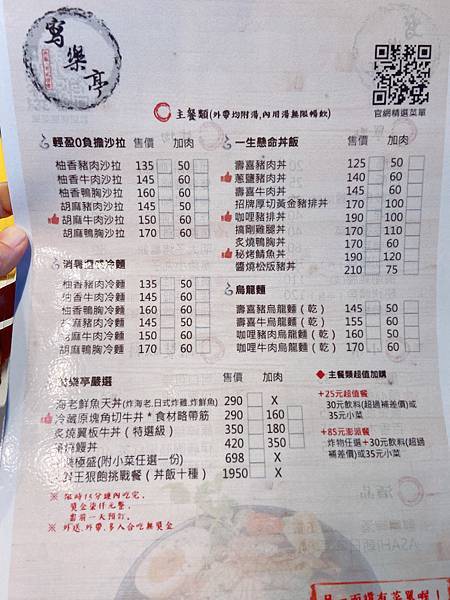 寫樂亭
官網精選菜單
主餐類(外帶均附湯,內用湯無限暢飲)
輕盈0負擔沙拉 售價 加肉
柚香豬肉沙拉 135 50
柚香牛肉沙拉 145 60
柚香鴨胸沙拉 160 60
胡麻豬肉沙拉 145 50
胡麻牛肉沙拉 150 60
胡麻鴨胸沙拉 170 60
消暑 冷麵
柚香豬肉冷麵 135 50
柚香牛肉冷麵 145 60
柚香鴨胸冷麵 160 60
胡麻豬肉冷麵 145 50
胡麻牛肉冷麵 150 60
胡麻鴨胸冷麵 170 60
一生懸命丼飯 售價 加肉
壽喜豬肉丼 125 50
蔥鹽豬肉丼 140 60
壽喜牛肉丼 145 60
招牌厚切黃金豬排丼 170 100
咖哩豬排丼 190 100
搞剛雞腿丼 170 110
炙燒鴨胸丼 170 60
秘烤鯖魚丼 190 120
醬燒松版豬丼 210 75
烏龍麵
壽喜豬烏龍麵(乾) 145 50
壽喜牛烏龍麵(乾) 155 60
咖哩豬肉烏龍麵(乾) 160 50
咖哩牛肉烏龍麵(乾) 170 60
樂亭嚴選 售價 加肉
海老鮮魚天丼(炸海老,日式炸雞,炸鮮魚) 290 X
冷藏原塊角切牛丼*食材略帶筋 290 160
炙燒翼板牛丼(特選級) 350 180
燒鰻丼 420 350
極盛(附小菜任選一份) 698 X
王狠飽挑戰餐(丼飯十種) 1950 X
※ 限時15分鐘內吃完,
獎金柒仟元整,
需前一天預訂。
※ 外送、外帶、多人合吃無獎金
◆ 主餐類超值加購
+25元超值餐
30元飲料(超過補差價)或
35元小菜
+85元澎派餐
炸物任選+30元飲料(超過
補差價)或35元小菜
另一面還有菜單喔!